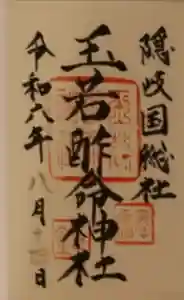 隠岐国総社
玉若酢命神社
令和六年八月十四日